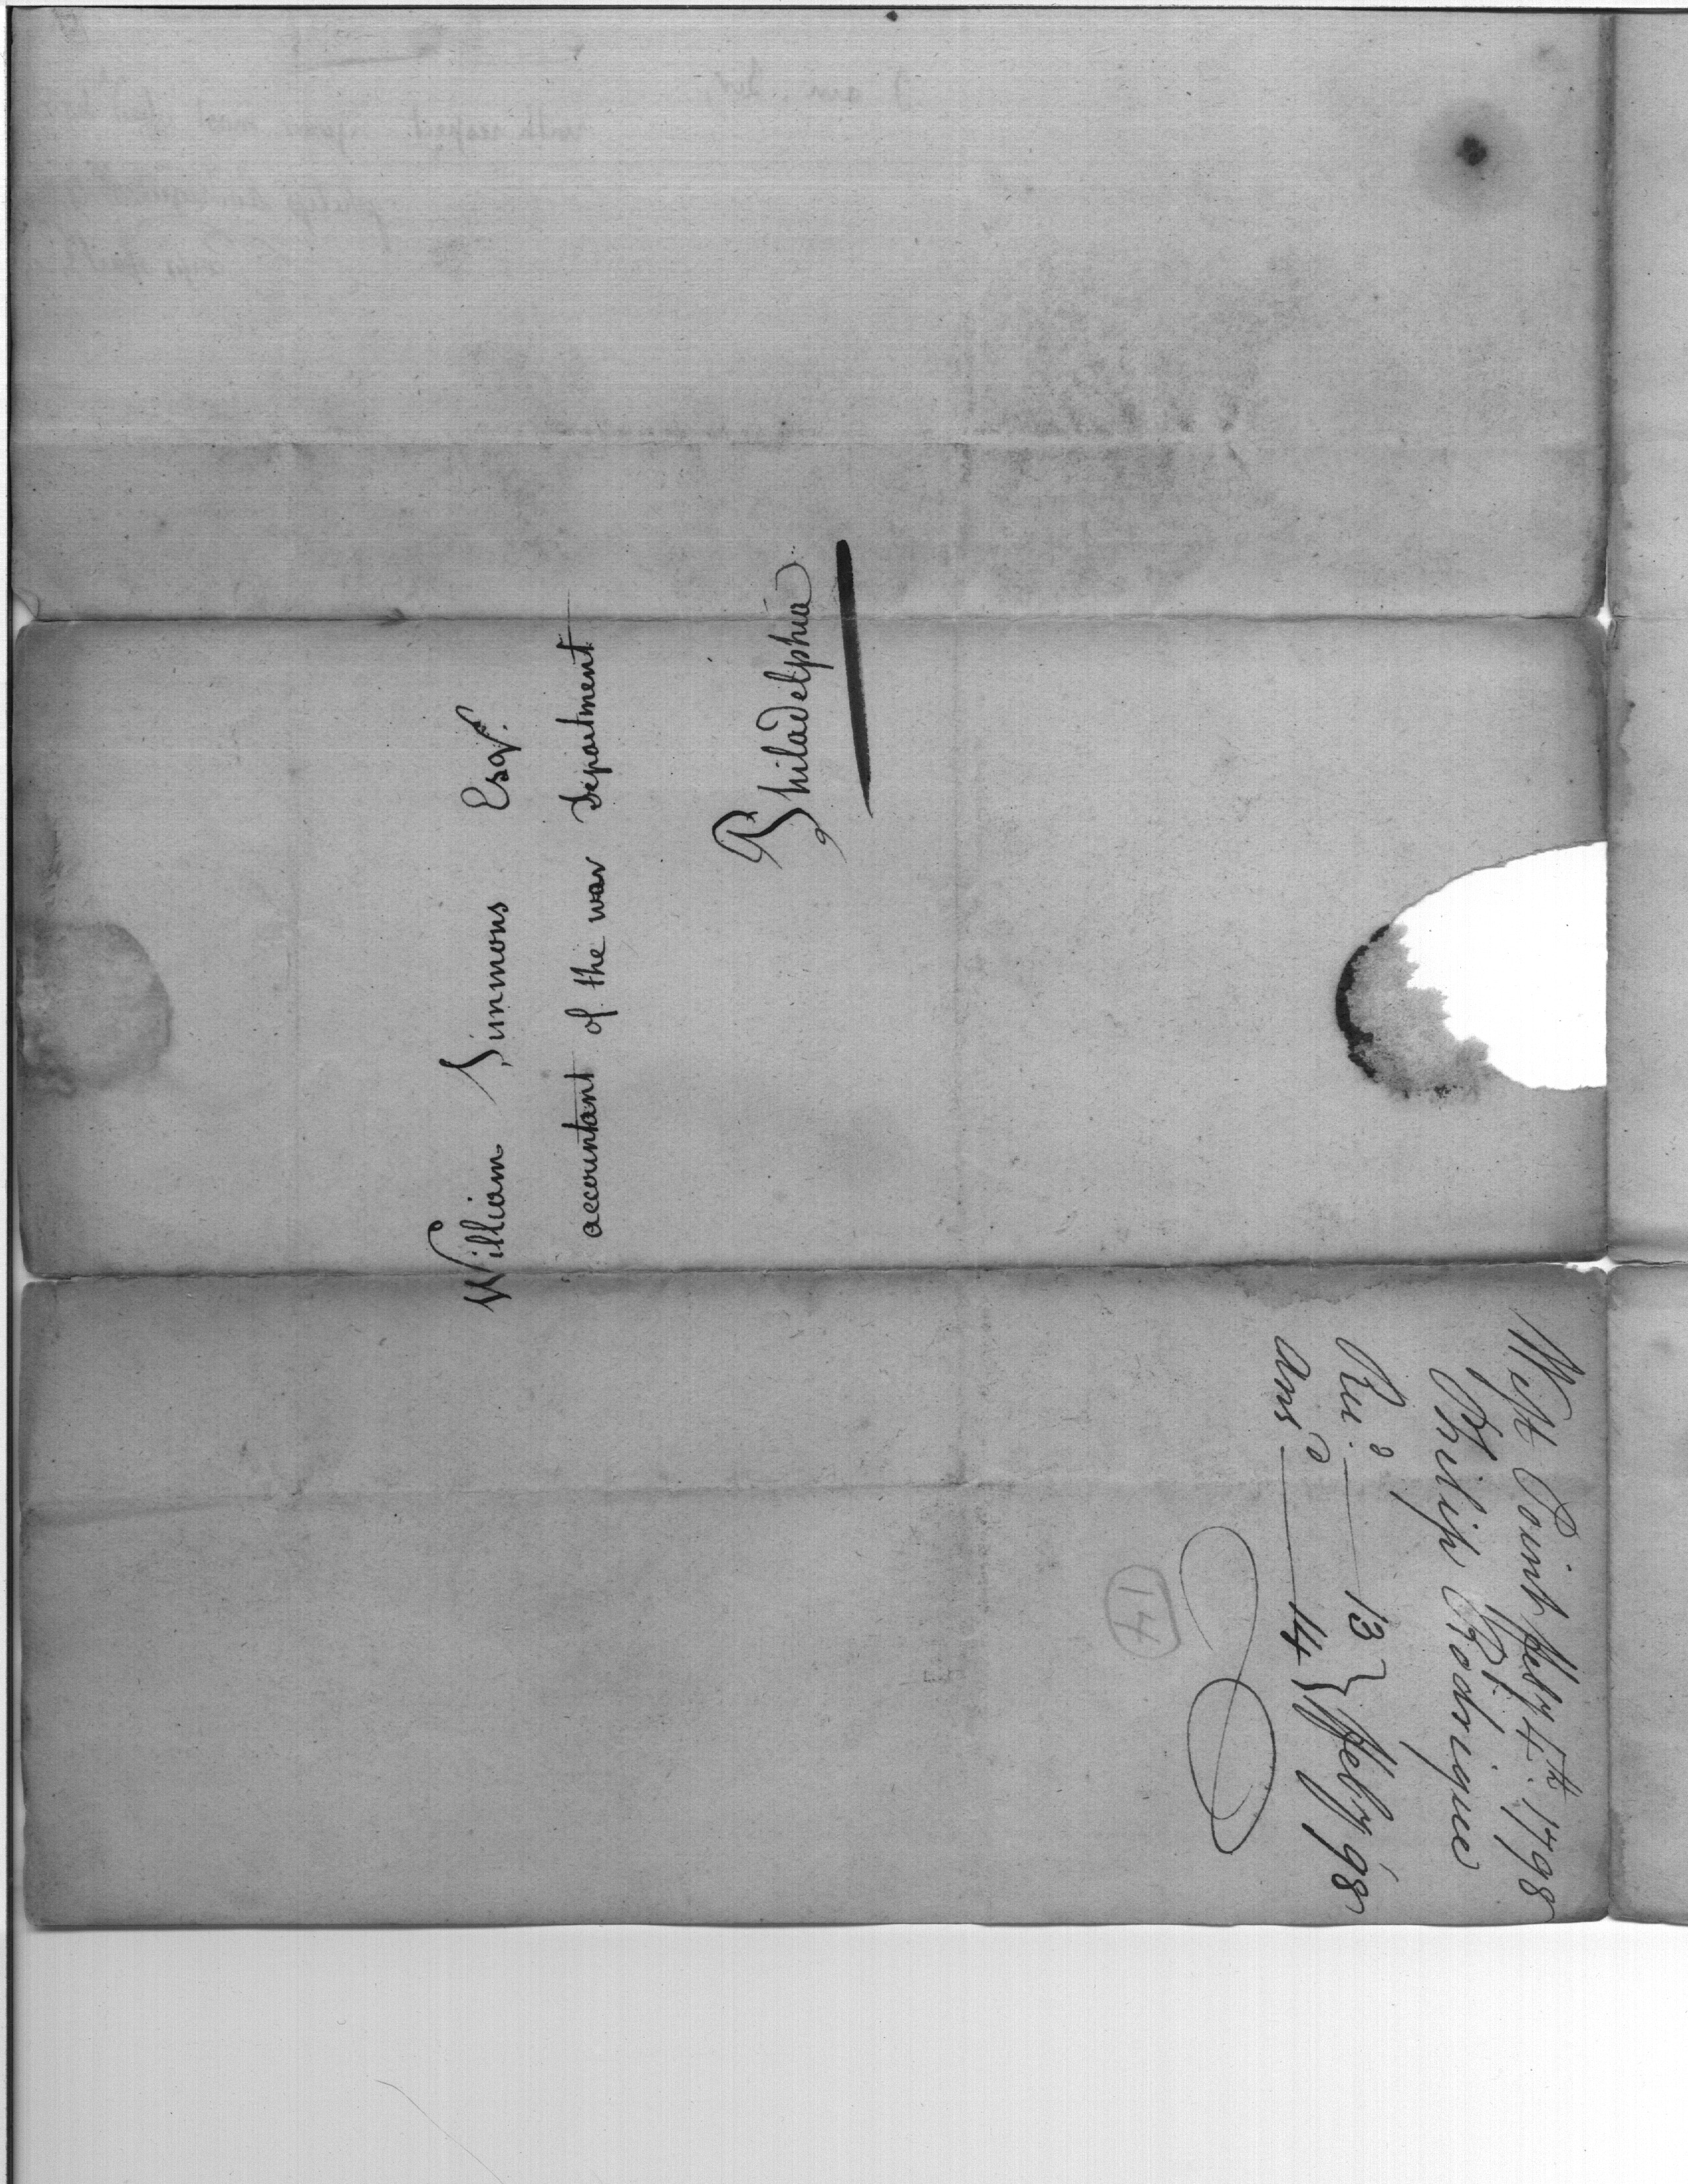 William Simmons Esqr.
accountant of the war Department
Philadelphia
West Point ffeby 4th. 1798
Philip Rodrigue
Rec.d 13 } ffeby 98
Ans.d 14 }
14
I am, Sir,
with respect. your most